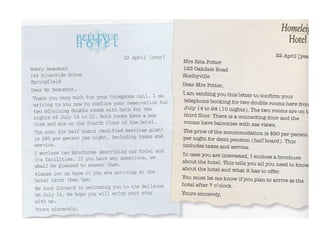 BELLEVUE
HOTEL
22 April [year]
Harry Beaumont
144 Riverside Drive
Springfield
Dear Mr Beaumont,
Thank you very much for your telephone call. I am
writing to you now to confirm your reservation for
two adjoining double rooms with bath for the
nights of July 14 to 23. Both rooms have a sea
view and are on the fourth floor of the hotel.
The cost for half board modified American plan)
is $85 per person per night, including taxes and
service.
I enclose two brochures describing our hotel and
its facilities. If you have any questions, we
shall be pleased to answer them.
Please let me know if you are arriving at the
hotel later than 7pm.
We look forward to welcoming you to the Bellevue
on July 14. We hope you will enjoy your stay
with us.
Yours sincerely,
Homeleigh
Hotel
22 April [year]
Mrs Rita Potter
128 Oakdale Road
Shelbyville
Dear Mrs Potter,
I am sending you this letter to confirm your
telephone booking for two double rooms from
July 14 to 24 (10 nights). The two rooms are on the
third floor. There is a connecting door and the
rooms have balconies with sea views.
The price of the accommodation is $90 per person
per night for demi pension (half board). This
includes taxes and service.
In case you are interested, I enclose a brochure
about the hotel. This tells you all you need to know
about the hotel and what it has to offer.
You must let me know if you plan to arrive at the
hotel after 7 o'clock.
Yours sincerely,